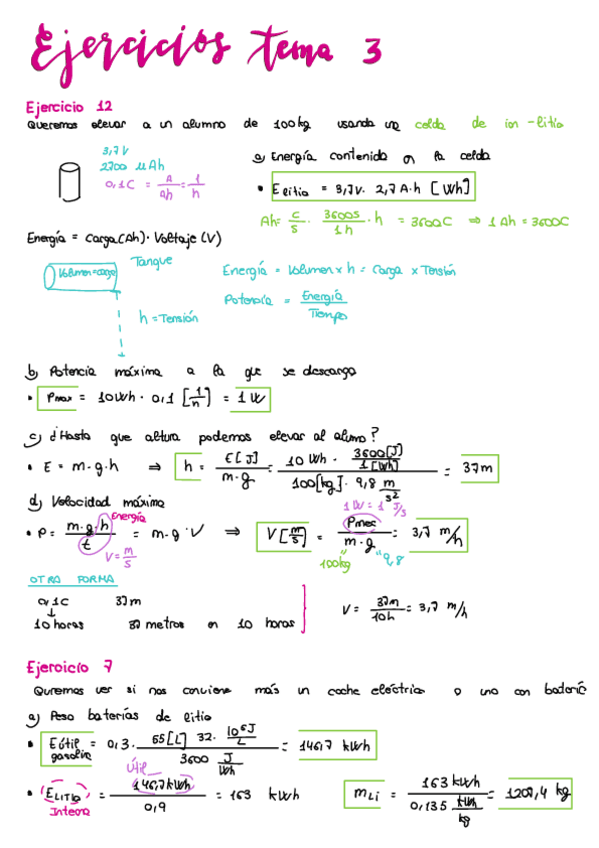 Ejercicios tema 3
Ejercicio 12
Queremos elevar a un alumno de 100kg usando una celda de ion-litio
3,7V
2700 µAh
0,1C = A/Ah = 1/h
a) Energía contenida en la celda
• E litio = 3,7V · 2,7 A·h [Wh]
Ah = C/S · 3600S/1h · h = 3600C ⇒ 1 Ah = 3600C
Energía = Carga(Ah) · Voltaje (V)
Volumen=carga
Tanque
h = Tensión
Energía = Volumen x h = Carga x Tensión
Potencia = Energía/Tiempo
b) Potencia máxima a la que se descarga
• Pmax = 10Wh · 0,1 [1/h] = 1W
c) ¿Hasta que altura podemos elevar al alumno?
• E = m·g·h ⇒ h = E[J]/m·g = 10 Wh · 3600[J]/1[Wh] / 100[kg] · 9,8 m/s² = 37m
d) Velocidad máxima
• P = m·g·h/t = m·g·V ⇒ V[m/s] = Pmax/m·g = 3,7 m/h
Energía
V = m/s
1W = 1 J/s
100kg
"9,8
OTRA FORMA
0,1C 37m
↓
10 horas 37 metros en 10 horas
V = 37m/10h = 3,7 m/h
Ejercicio 7
Queremos ver si nos conviene más un coche eléctrico o uno con baterí
a) Peso baterías de litio
• Eútil gasolina = 0,3 · 65[L] 32 · 10⁶J/L / 3600 J/Wh = 146,7 kWh
Útil
• ELITIO = 146,7kWh/0,9 = 163 kWh
Integra
mLi = 163 kWh / 0,135 kWh/kg = 1207,4 kg